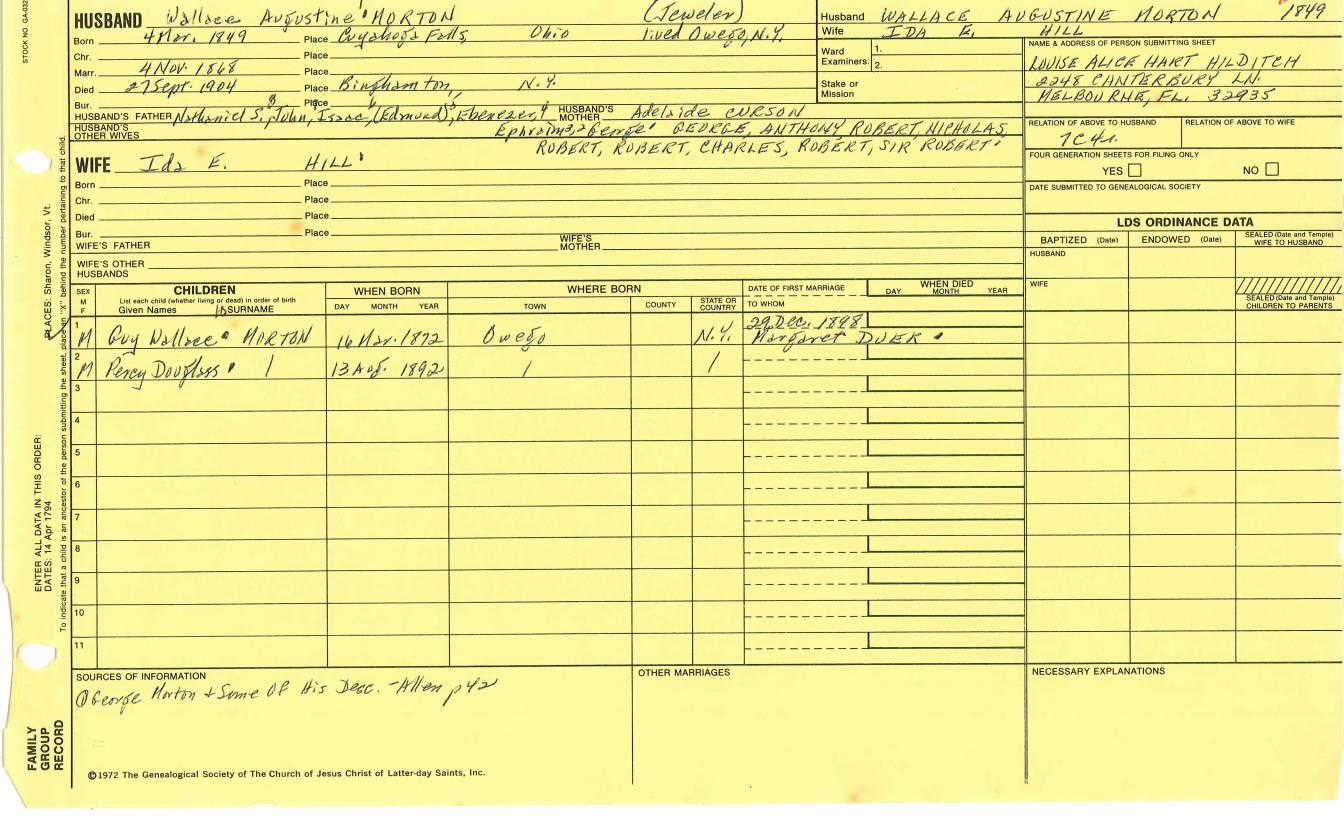 STOCK NO. GA-032
HUSBAND Wallace Augustine MORTON (Jeweler)
Born 4 Mar. 1849 Place Cuyahoga Falls, Ohio lived Owego, N.Y.
Chr. Place
Marr. 4 Nov. 1868 Place
Died 27 Sept. 1904 Place Binghamton, N.Y.
Bur. Place
HUSBAND'S FATHER Nathaniel S., John, Isaac, (Edmund), Ebenezer, HUSBAND'S MOTHER Adelaide CURSON
HUSBAND'S OTHER WIVES Ephraim, George GEORGE, ANTHONY, ROBERT, NICHOLAS,
ROBERT, ROBERT, CHARLES, ROBERT, SIR ROBERT
WIFE Ida E. HILL
Born Place
Chr. Place
Died Place
Bur. Place
WIFE'S FATHER WIFE'S MOTHER
WIFE'S OTHER HUSBANDS
Husband WALLACE AUGUSTINE MORTON 1849
Wife IDA E. HILL
Ward Examiners: 1.
2.
Stake or Mission
NAME & ADDRESS OF PERSON SUBMITTING SHEET
LOUISE ALICE HART HILDITCH
2248 CANTERBURY LN.
MELBOURNE, FL. 32935
RELATION OF ABOVE TO HUSBAND RELATION OF ABOVE TO WIFE
7C4r
FOUR GENERATION SHEETS FOR FILING ONLY
YES NO
DATE SUBMITTED TO GENEALOGICAL SOCIETY
LDS ORDINANCE DATA
BAPTIZED (Date) ENDOWED (Date) SEALED (Date and Temple) WIFE TO HUSBAND
HUSBAND
WIFE
SEALED (Date and Temple) CHILDREN TO PARENTS
SEX M F CHILDREN WHEN BORN WHERE BORN DATE OF FIRST MARRIAGE WHEN DIED
List each child (whether living or dead) in order of birth
Given Names SURNAME DAY MONTH YEAR TOWN COUNTY STATE OR COUNTRY TO WHOM DAY MONTH YEAR
1 M Guy Wallace MORTON 16 Mar. 1872 Owego N.Y. 29 Dec. 1898 Margaret DUEK
2 M Percy Douglass 13 Aug. 1892
3
4
5
6
7
8
9
10
11
SOURCES OF INFORMATION OTHER MARRIAGES NECESSARY EXPLANATIONS
① George Morton + Some Of His Desc. - Allen p42
©1972 The Genealogical Society of The Church of Jesus Christ of Latter-day Saints, Inc.
FAMILY GROUP RECORD
ENTER ALL DATA IN THIS ORDER:
DATES: 14 Apr 1794
PLACES: Sharon, Windsor, Vt.
To indicate that a child is an ancestor of the person submitting the sheet, place an "X" behind the number pertaining to that child.